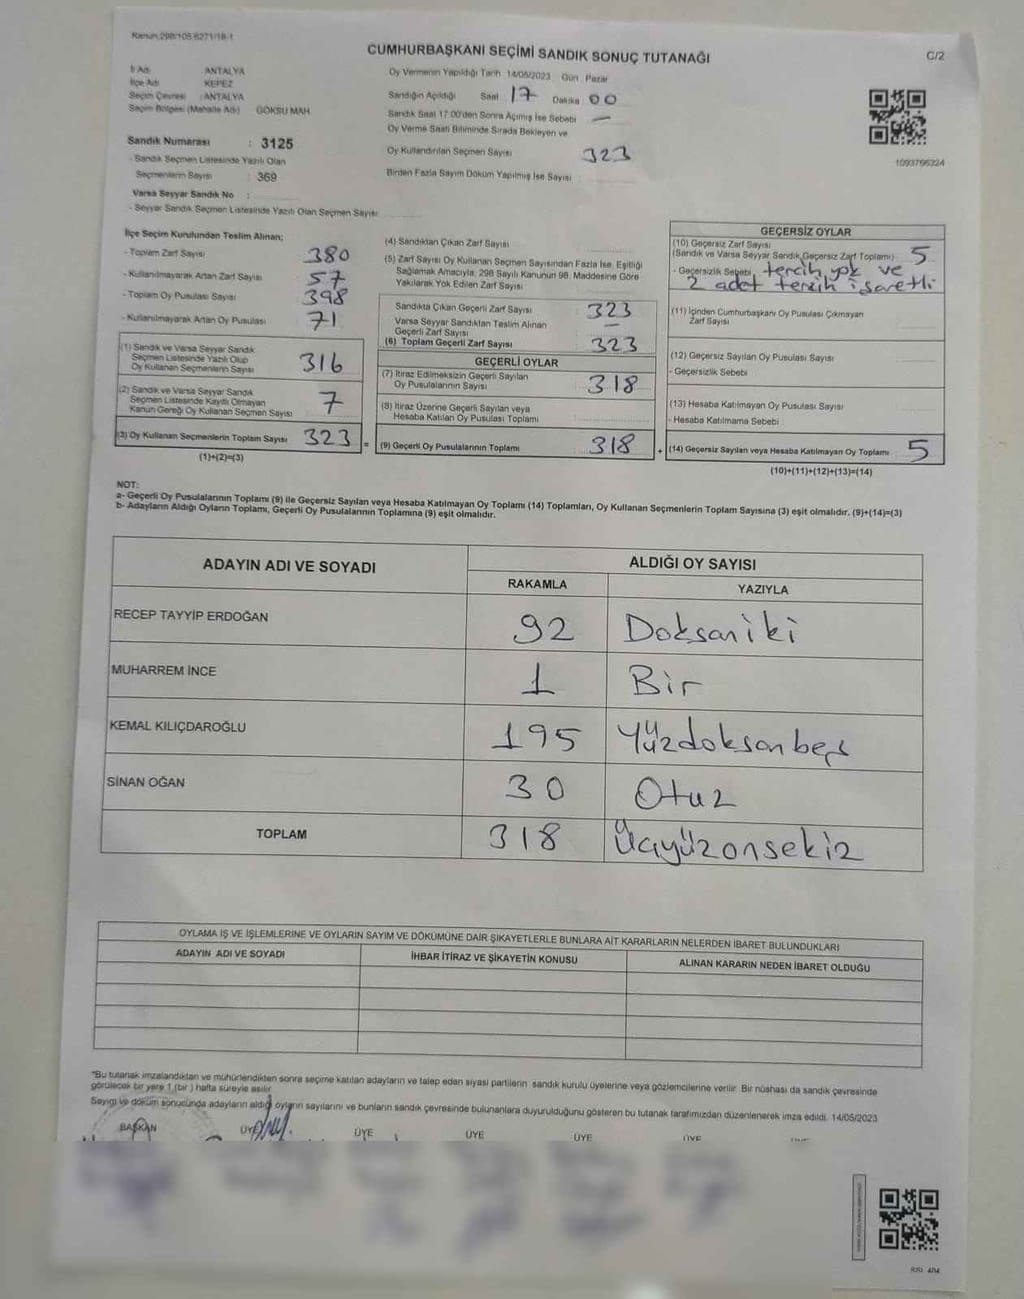 Kanun 298/105 6271/18-1
CUMHURBAŞKANI SEÇİMİ SANDIK SONUÇ TUTANAĞI
C/2
İl Adı ANTALYA
İlçe Adı KEPEZ
Seçim Çevresi : ANTALYA
Seçim Bölgesi (Mahalle Adı) GÖKSU MAH.
Sandık Numarası : 3125
- Sandık Seçmen Listesinde Yazılı Olan
Seçmenlerin Sayısı : 369
Varsa Seyyar Sandık No :
- Seyyar Sandık Seçmen Listesinde Yazılı Olan Seçmen Sayısı
Oy Vermenin Yapıldığı Tarih 14/05/2023 Gün Pazar
Sandığın Açıldığı Saat 17 Dakika 00
Sandık Saat 17:00'den Sonra Açılmış İse Sebebi —
Oy Verme Saati Bitiminde Sırada Bekleyen ve
Oy Kullandırılan Seçmen Sayısı 323
Birden Fazla Sayım Döküm Yapılmış İse Sayısı :
1093766324
İlçe Seçim Kurulundan Teslim Alınan;
- Toplam Zarf Sayısı 380
- Kullanılmayarak Artan Zarf Sayısı 57
- Toplam Oy Pusulası Sayısı 398
- Kullanılmayarak Artan Oy Pusulası 71
(1) Sandık ve Varsa Seyyar Sandık
Seçmen Listesinde Yazılı Olup
Oy Kullanan Seçmenlerin Sayısı 316
(2) Sandık ve Varsa Seyyar Sandık
Seçmen Listesinde Kayıtlı Olmayan
Kanun Gereği Oy Kullanan Seçmen Sayısı 7
(3) Oy Kullanan Seçmenlerin Toplam Sayısı 323 =
(1)+(2)=(3)
(4) Sandıktan Çıkan Zarf Sayısı
(5) Zarf Sayısı Oy Kullanan Seçmen Sayısından Fazla İse, Eşitliği
Sağlamak Amacıyla, 298 Sayılı Kanunun 98. Maddesine Göre
Yakılarak Yok Edilen Zarf Sayısı
Sandıkta Çıkan Geçerli Zarf Sayısı 323
Varsa Seyyar Sandıktan Teslim Alınan
Geçerli Zarf Sayısı —
(6) Toplam Geçerli Zarf Sayısı 323
GEÇERLİ OYLAR
(7) İtiraz Edilmeksizin Geçerli Sayılan
Oy Pusulalarının Sayısı 318
(8) İtiraz Üzerine Geçerli Sayılan veya
Hesaba Katılan Oy Pusulası Toplamı
(9) Geçerli Oy Pusulalarının Toplamı 318 +
GEÇERSİZ OYLAR
(10) Geçersiz Zarf Sayısı
(Sandık ve Varsa Seyyar Sandık Geçersiz Zarf Toplamı) 5
- Geçersizlik Sebebi tercih yok ve
2 adet tercih işaretli
(11) İçinden Cumhurbaşkanı Oy Pusulası Çıkmayan
Zarf Sayısı
(12) Geçersiz Sayılan Oy Pusulası Sayısı
- Geçersizlik Sebebi
(13) Hesaba Katılmayan Oy Pusulası Sayısı
- Hesaba Katılmama Sebebi
(14) Geçersiz Sayılan veya Hesaba Katılmayan Oy Toplamı 5
(10)+(11)+(12)+(13)=(14)
NOT:
a- Geçerli Oy Pusulalarının Toplamı (9) ile Geçersiz Sayılan veya Hesaba Katılmayan Oy Toplamı (14) Toplamları, Oy Kullanan Seçmenlerin Toplam Sayısına (3) eşit olmalıdır. (9)+(14)=(3)
b- Adayların Aldığı Oyların Toplamı, Geçerli Oy Pusulalarının Toplamına (9) eşit olmalıdır.
ADAYIN ADI VE SOYADI
ALDIĞI OY SAYISI
RAKAMLA YAZIYLA
RECEP TAYYİP ERDOĞAN 92 Doksaniki
MUHARREM İNCE 1 Bir
KEMAL KILIÇDAROĞLU 195 Yüzdoksanbeş
SİNAN OĞAN 30 Otuz
TOPLAM 318 Üçyüzonsekiz
OYLAMA İŞ VE İŞLEMLERİNE VE OYLARIN SAYIM VE DÖKÜMÜNE DAİR ŞİKAYETLERLE BUNLARA AİT KARARLARIN NELERDEN İBARET BULUNDUKLARI
ADAYIN ADI VE SOYADI İHBAR İTİRAZ VE ŞİKAYETİN KONUSU ALINAN KARARIN NEDEN İBARET OLDUĞU
"Bu tutanak imzalandıktan ve mühürlendikten sonra seçime katılan adayların ve talep eden siyasi partilerin sandık kurulu üyelerine veya gözlemcilerine verilir. Bir nüshası da sandık çevresinde
görülecek bir yere 1 (bir ) hafta süreyle asılır.
Sayım ve döküm sonucunda adayların aldığı oyların sayılarını ve bunların sandık çevresinde bulunanlara duyurulduğunu gösteren bu tutanak tarafımızdan düzenlenerek imza edildi. 14/05/2023
BAŞKAN ÜYE ÜYE ÜYE ÜYE ÜYE